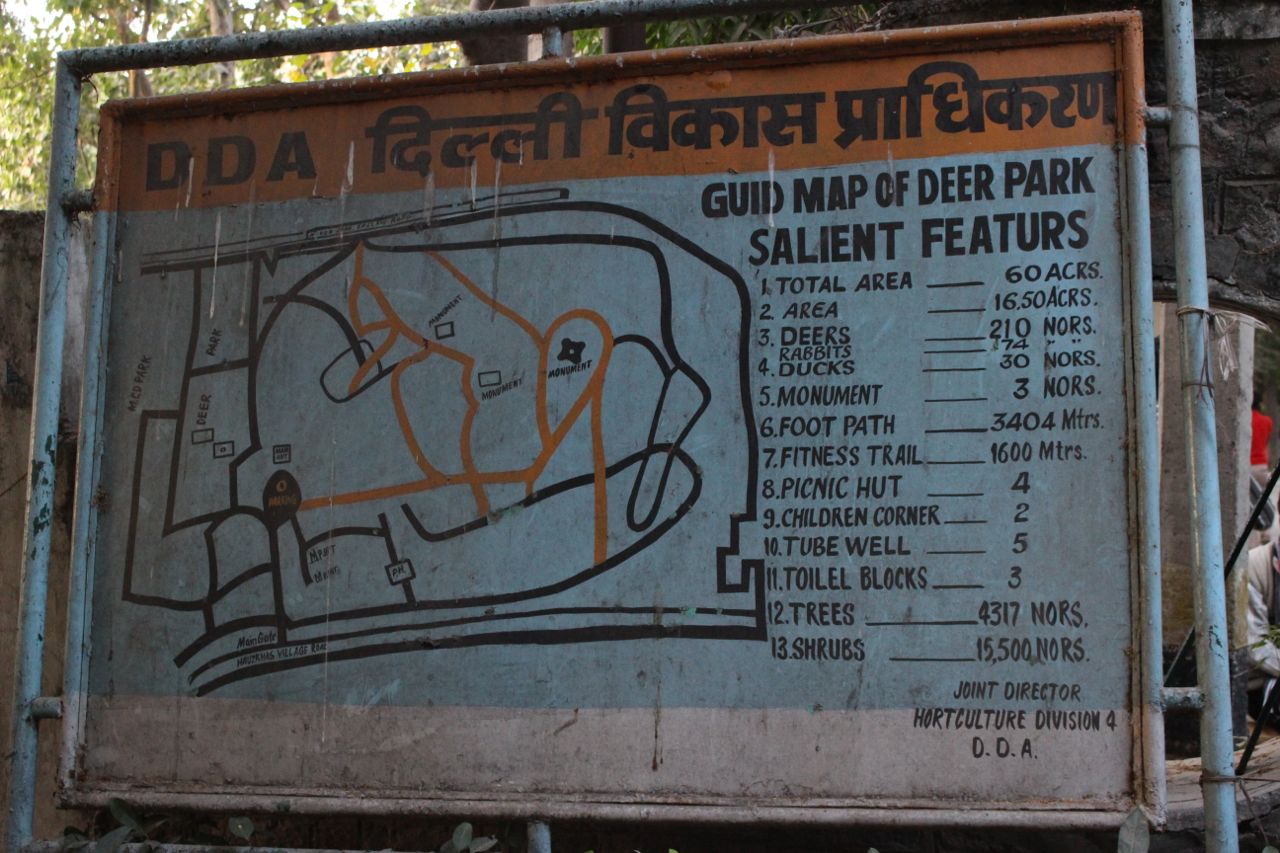 DDA दिल्ली विकास प्राधिकरण
GUID MAP OF DEER PARK
SALIENT FEATURS
1. TOTAL AREA 60 ACRS.
2. AREA 16,50 ACRS.
3. DEERS 210 NORS.
RABBITS 74 " "
4. DUCKS 30 NORS.
5. MONUMENT 3 NORS.
6. FOOT PATH 3404 Mtrs.
7. FITNESS TRAIL 1600 Mtrs.
8. PICNIC HUT 4
9. CHILDREN CORNER 2
10. TUBE WELL 5
11. TOILEL BLOCKS 3
12. TREES 4317 NORS.
13. SHRUBS 15,500 NORS.
JOINT DIRECTOR
HORTCULTURE DIVISION 4
D.D.A.
M.CD PARK
PARK
DEER
MONUMENT
MONUMENT
MONUMENT
PARKING
Main Gate
HAUZKHAS VILLAGE ROAD